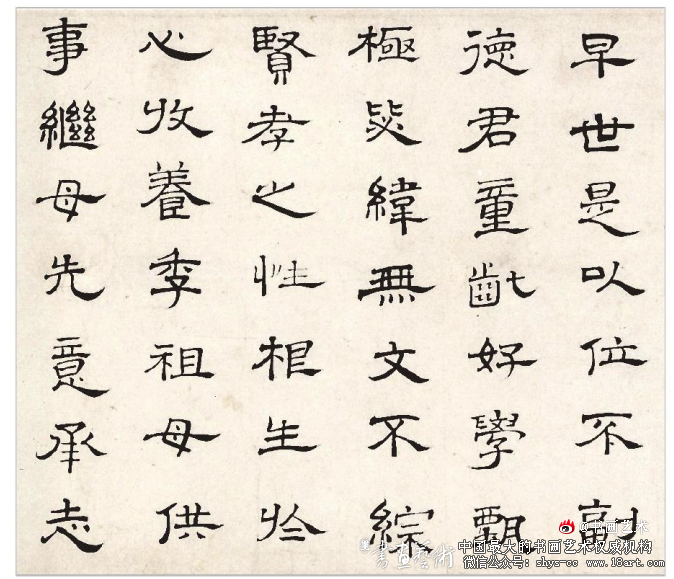 早世是以位不副
德君童齔好學甄
極毖緯無文不綜
賢孝之性根生於
心收養季祖母供
事繼母先意承志
@书画艺术
中国最大的书画艺术权威机构
微信公众号：shys-cc www.18art.com